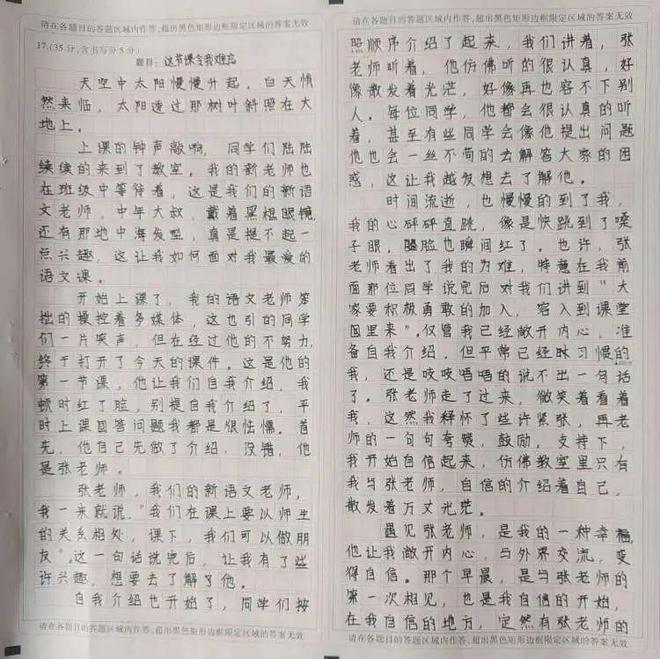 请在各题目的答题区域内作答,超出黑色矩形边框限定区域的答案无效
17.(35分,含书写分5分)
题目:这节课令我难忘
天空中太阳慢慢升起,白天悄
然来临,太阳透过那树叶斜照在大
地上。
上课的钟声敲响,同学们陆陆
续续的来到了教室。我的新老师也
在班级中等待着,这是我们的新语
文老师。中年大叔,戴着黑框眼镜,
还有那地中海发型,真是提不起一
点兴趣,这让我如何面对我最爱的
语文课。
开始上课了,我的语文老师笨
拙的操控着多媒体,这也引的同学
们一片笑声,但在经过他的不努力,
终于打开了今天的课件。这是他的
第一节课,他让我们自我介绍,我
顿时红了脸,别提自我介绍了,平
时上课回答问题我都是很怯懦。首
先,他自己先做了介绍,没错,他
是张老师。
张老师,我们的新语文老师,
我一来就说,"我们在课上要以师生
的关系相处,课下,我们可以做朋
友"。这一句话说完后,让我有了些
许兴趣,想要去了解了他。
自我介绍也开始了,同学们按
请在各题目的答题区域内作答,超出黑色矩形边框限定区域的答案无效
请在各题目的答题区域内作答,超出黑色矩形边框限定区域的答案无效
照顺序介绍了起来,我们讲着,张
老师听着,他仿佛听的很认真,好
像散发着光茫,好像再也容不下别
人。每位同学,他都会很认真的听
着,甚至有些同学会像他提出问题
他也会一丝不苟的去解答大家的困
惑,这让我越发想去了解他。
时间流逝,也慢慢的到了我,
我的心砰砰直跳,像是快跳到了嗓
子眼,脸也瞬间红了。也许,张
老师看出了我的为难,特意在我前
面那位同学说完后对我们讲到"大
家要积极勇敢的加入,容入到课堂
里来"。仅管我已经敞开内心,准
备自我介绍,但平常已经习惯的
我,还是吱吱唔唔的说不出一句话
了。张老师走了过来,微笑着看着
我,这然我释怀了些许紧张,再老
师的一句句夸奖,鼓励,支持下,
我开始自信起来,仿佛教室里只有
我与张老师,自信的介绍着自己,
散发着万丈光茫。
遇见张老师,是我的一种幸福,
他让我敞开内心,与外界交流,变
得自信。那个早晨,是与张老师的
第一次相见,也是我自信的开始,
在我自信的地方,定然有张老师的
请在各题目的答题区域内作答,超出黑色矩形边框限定区域的答案无效